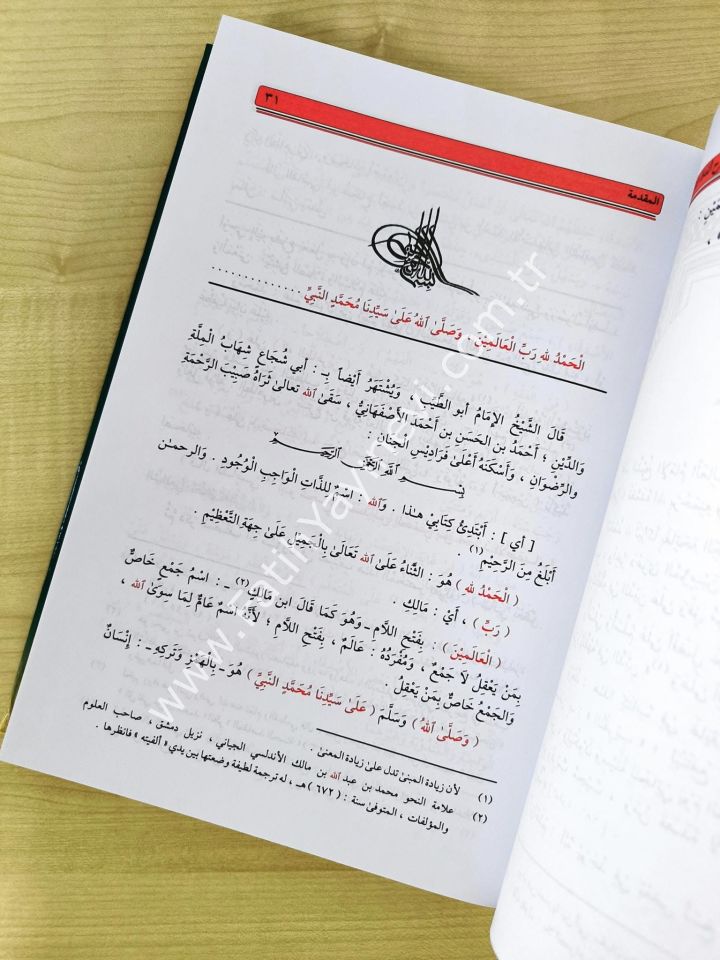 ٣١
المقدمة
الْحَمْدُ للهِ رَبِّ الْعَالَمِيْنَ ، وَصَلَّىٰ ٱللهُ عَلَىٰ سَيِّدِنَا مُحَمَّدٍ النَّبِيِّ ..............
قَالَ الشَّيْخُ الإِمَامُ أبو الطَّيِّبِ ، وَيُشْتَهَرُ أَيْضاً بِـ : أبي شُجَاعٍ شِهَابُ الْمِلَّةِ
وَالدِّيْنِ ؛ أَحْمَدُ بن الحَسَنِ بن أَحْمَدَ الأَصْفَهَانِيُّ ، سَقَىٰ ٱلله تعالىٰ ثَرَاهُ صَبِيْبَ الرَّحْمَةِ
والرِّضْوَانِ ، وَأَسْكَنَهُ أَعْلَىٰ فَرَادِيْسِ الْجِنَانِ :
بِسْمِ ٱللهِ ٱلرَّحْمَٰنِ ٱلرَّحِيمِ
[ أي ] : أَبْتَدِئُ كِتَابِيْ هٰذا . وَٱلله : اسْمٌ لِلذَّاتِ الْوَاجِبِ الْوُجُودِ . والرحمٰن
أَبْلَغُ مِنَ الرَّحِيْمِ (١) .
( الْحَمْدُ للهِ ) هُوَ : الثَّنَاءُ عَلَىٰ ٱلله تَعَالَىٰ بِالْجَمِيْلِ عَلَىٰ جِهَةِ التَّعْظِيْمِ .
( رَبِّ ) ، أَيْ : مَالِكِ .
( الْعَالَمِيْنَ ) : بِفَتْحِ اللَّامِ ـ وَهُوَ كَمَا قَالَ ابن مَالِكٍ (٢) ـ : اسْمُ جَمْعٍ خَاصٌّ
بِمَنْ يَعْقِلُ لَا جَمْعٌ ، وَمُفْرَدُهُ : عَالَمٌ ، بِفَتْحِ اللَّامِ ؛ لأَنَّهُ اسْمٌ عَامٌّ لِمَا سِوَىٰ ٱلله ،
وَالْجَمْعُ خَاصٌّ بِمَنْ يَعْقِلُ .
( وَصَلَّىٰ ٱللهُ ) وَسَلَّمَ ( عَلَىٰ سَيِّدِنَا مُحَمَّدٍ النَّبِيِّ ) هُوَ ـ بِالْهَمْزِ وَتَرْكِهِ ـ : إِنْسَانٌ
(١) لأن زيادة المبنىٰ تدل علىٰ زيادة المعنىٰ .
(٢) علامة النحو محمد بن عبد ٱلله بن مالك الأندلسي الجياني ، نزيل دمشق ، صاحب العلوم
والمؤلفات ، المتوفىٰ سنة : ( ٦٧٢ ) هـ ، له ترجمة لطيفة وضعتها بين يدي « ألفيته » فانظرها .
www.FatihYayinevi.com.tr